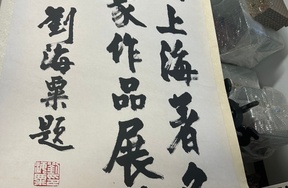 上海著名
家作品展
劉海粟題